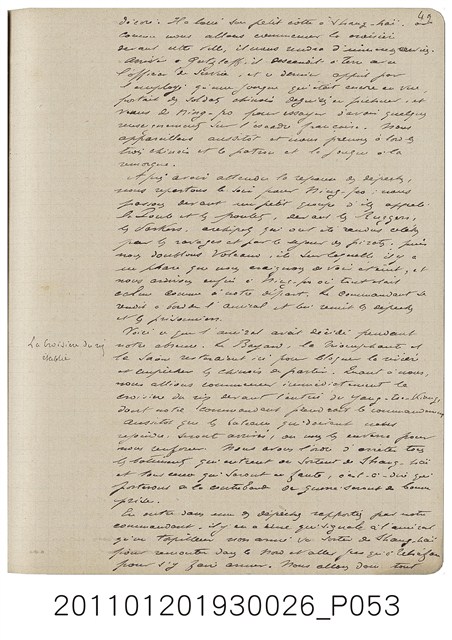 49
décoré. Il a loué son petit cotre à Shang-haï. et
comme nous allons commencer la croisière
devant cette ville, il nous rendra d'immenses services.
Arrivé à Gutzlaff, il descendit à terre avec
l'officier de service, et ce dernier apprit par
l'employé qu'une jonque qui était encore en vue,
portait des soldats chinois déguisés en pêcheurs, et
venus de Ning-po pour essayer d'avoir quelques
renseignements sur l'escadre française. Nous
appareillons aussitôt et nous prenons à bord les
trois chinois et le patron et la jonque à la
remorque.
Après avoir attendu la réponse des dépêches,
nous repartons le soir pour Ning-po: nous
passons devant un petit groupe d'îles appelé
la Poule et les poulets, devant les Ruggers,
les Parkers, archipels qui ont été rendus célèbres
par les ravages et par le séjour des pirates, puis
nous doublons Volcano, île sur laquelle il y a
un phare que nous craignions de voir éteint, et
nous arrivons enfin à Ning-po où tout était
calme comme à notre départ. Le commandant se
rendit à bord de l'amiral et lui remit les dépêches
et les prisonniers.
Voici ce que l'amiral avait décidé pendant
notre absence. Le Bayard, la Triomphante et
la Saône resteraient ici pour bloquer la rivière
et empêcher les chinois de partir. Quant à nous,
nous allions commencer immédiatement la
croisière du riz devant l'entrée du Yang-tse-kiang,
dont notre Commandant prendrait le commandement
Aussitôt que les bateaux qui doivent nous
rejoindre, seront arrivés, on nous les enverra pour
nous renforcer. Nous avons l'ordre d'arrêter tous
les bâtiments qui entrent ou sortent de Shang-haï
et tous ceux qui seront en faute, c'est-à-dire qui
porteront de la contrebande de guerre seront de bonne
prise.
En outre dans une des dépêches rapportées par notre
commandant, il y en a une qui signale à l'amiral
qu'un torpilleur non armé va sortir de Shang-haï
pour remonter dans le Nord et aller jusqu'à
pour s'y faire armer. Nous allons donc tout
La Croisière du riz
établie
201101201930026_P053